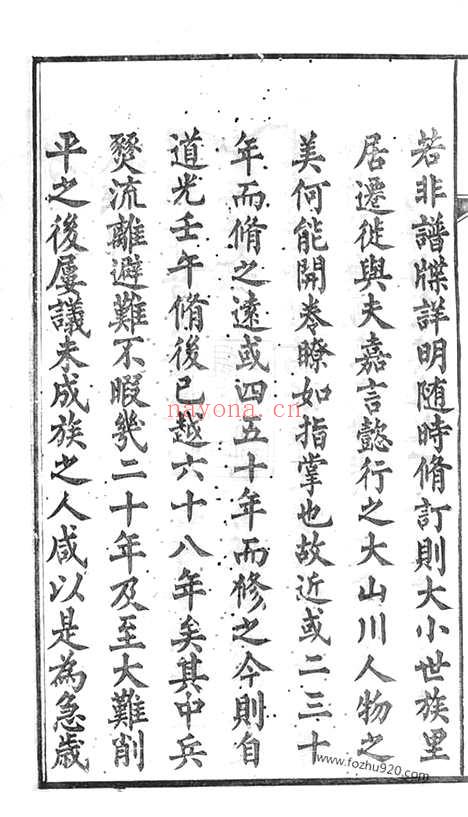 若非譜牒詳明随時脩訂則大小世族里
居遷徙與夫嘉言懿行之大山川人物之
美何能開卷瞭如指掌也故近或二三十
年而脩之遠或四五十年而修之今則自
道光壬午脩後已越六十八年矣其中兵
燹流離避難不暇幾二十年及至大難削
平之後屢議未成族之人咸以是為急歲
nayona.cn
www.fozhu920.com